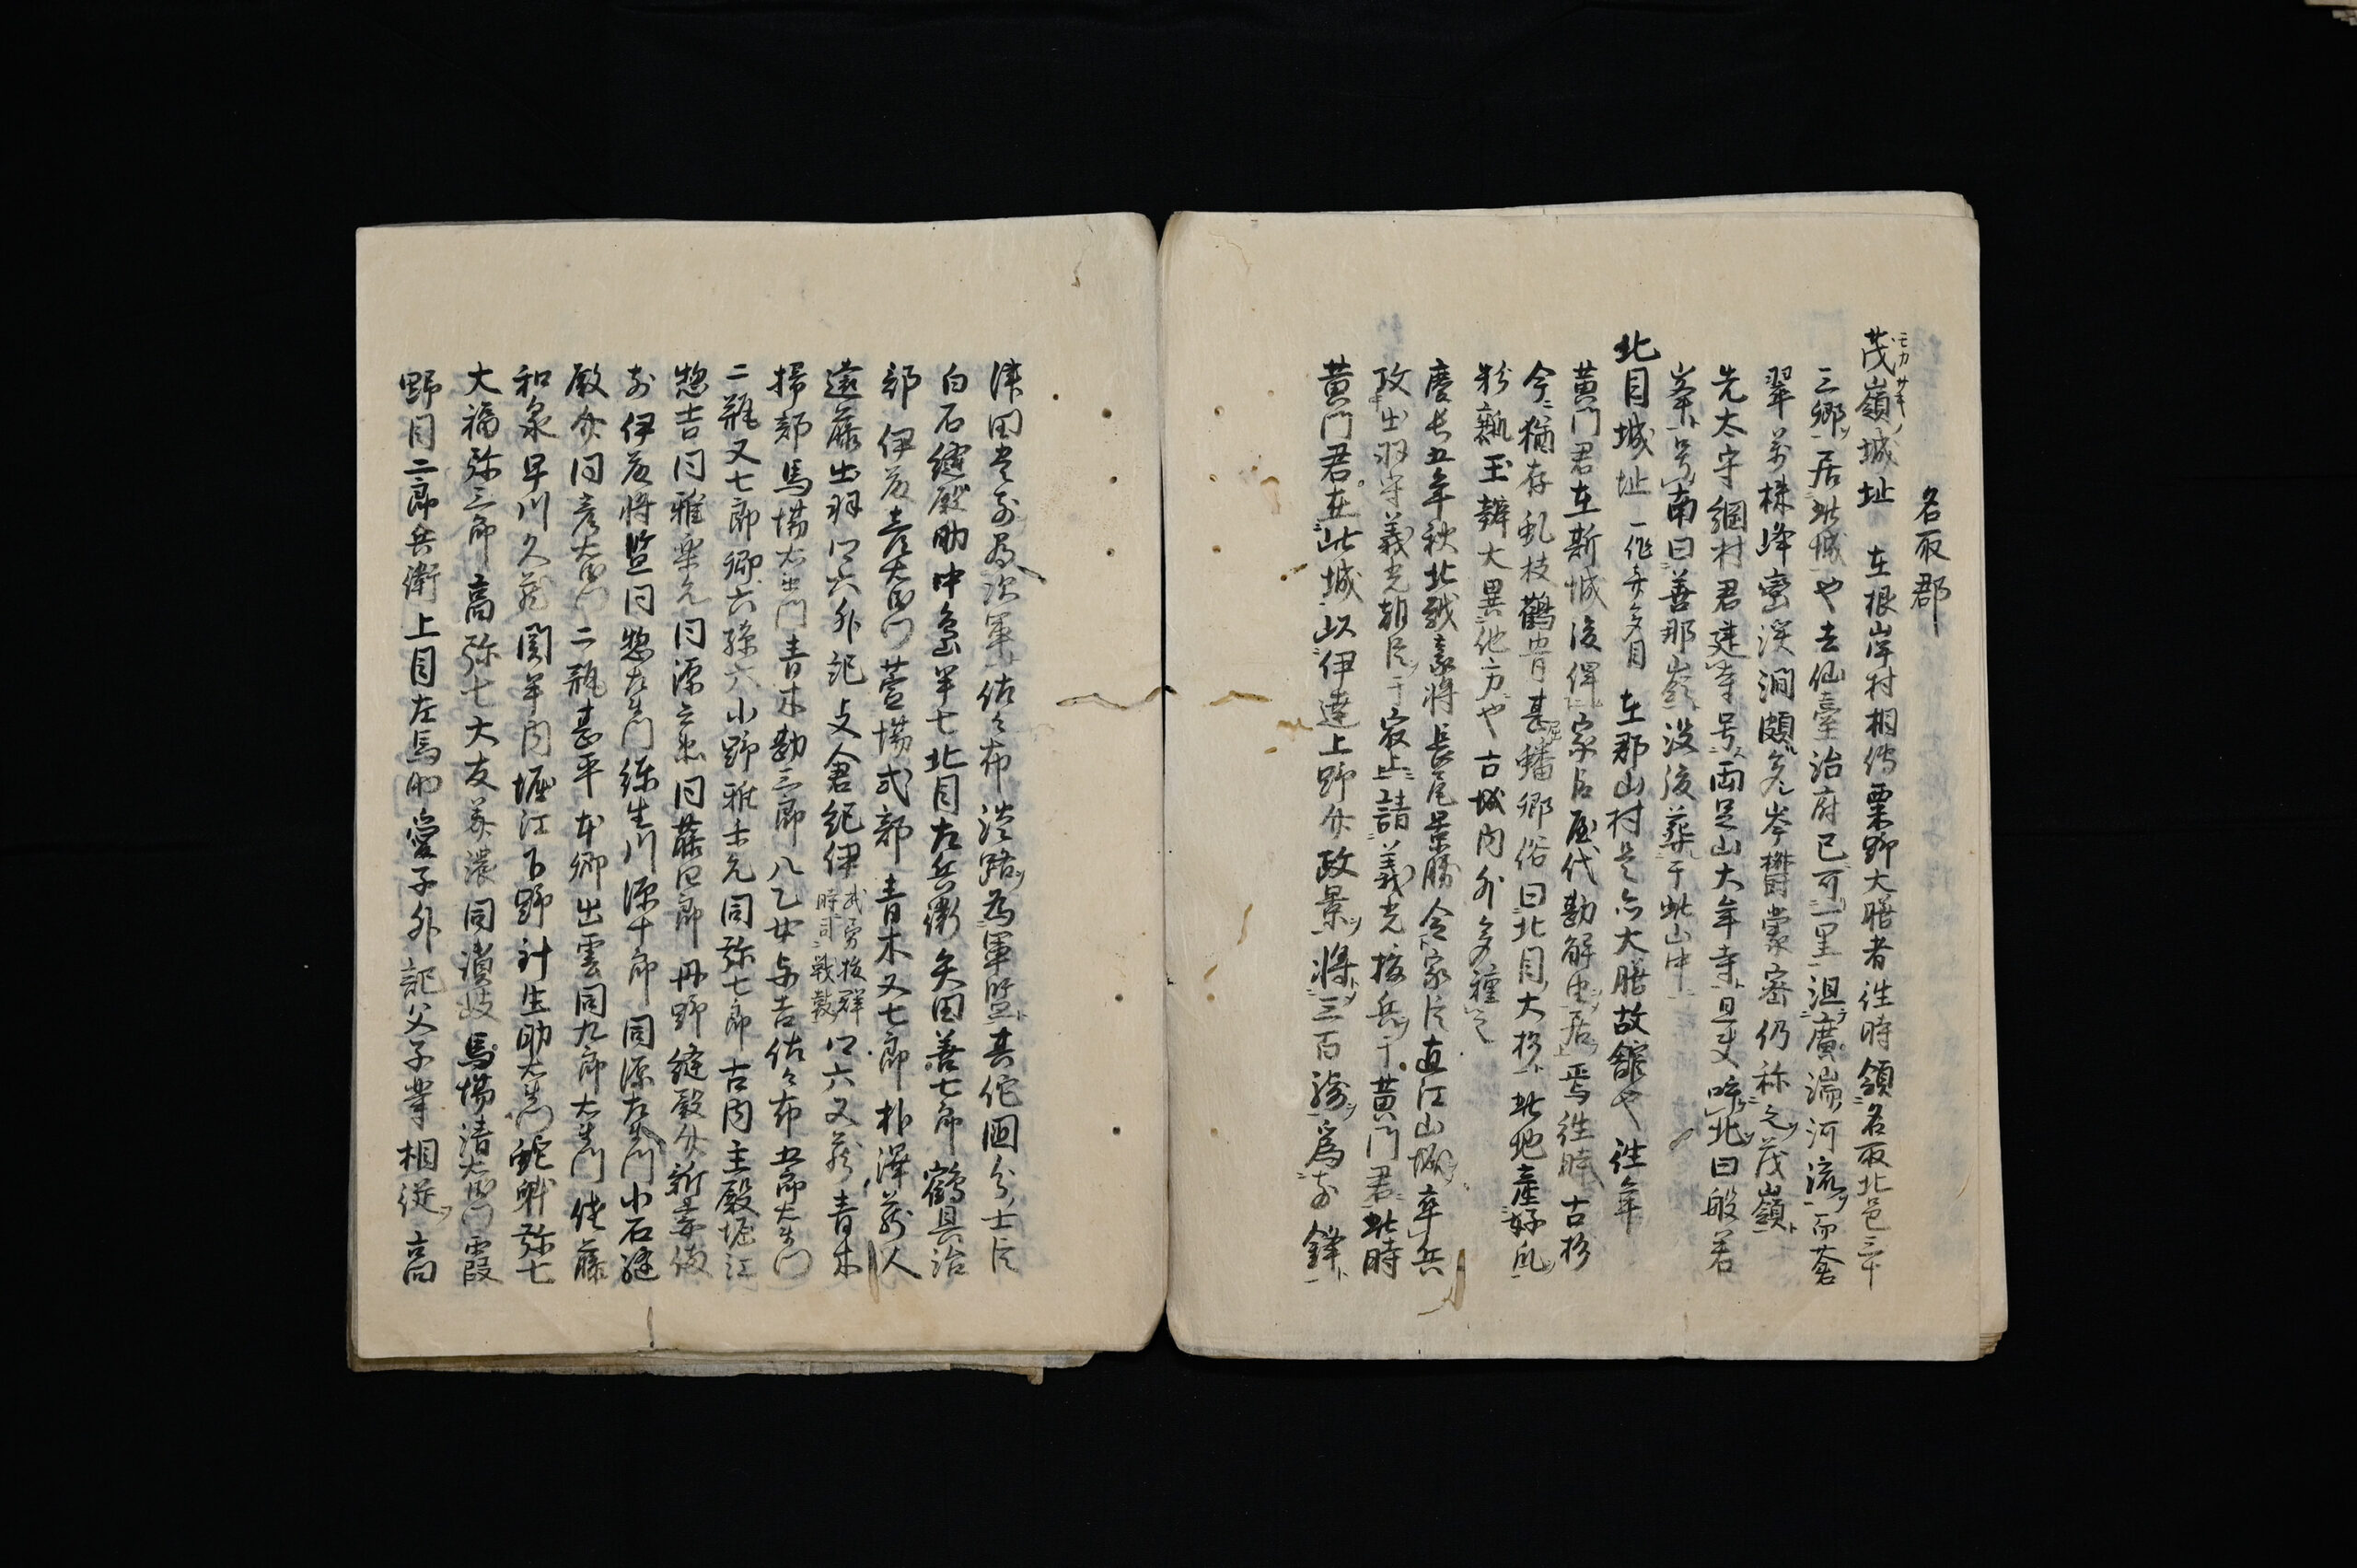 名取郡
茂嶺城址 在根岸村相傳粟野大膳者往時領名取北邑三十
三郷居此城也去仙臺治府已可一里沮廣湍河流而蒼
翠萬株峰巒渓澗頗多岑欝蒙密仍称之茂嶺
先太守綱村君建寺号両足山大年寺且更喚北曰般若
峯号南曰善那嶽没後葬于此山中
北目城址 一作弃多目 在郡山村是亦大膳故舘也往年
黄門君在斯城後俾家臣屋代勘解由居焉往時古杉
今猶存虬枝鶴骨甚蟠郷俗曰北目大杉此地産好瓜
粉瓤玉瓣大異他方也古城内外多種之
慶長五年秋北越豪將長尾景勝令家臣直江山城率兵
攻出羽守義光朝臣于最上請義光援兵于黄門君此時
黄門君在此城以伊達上野介政景將三百騎爲前鋒
津田豊前為次軍佐々布淡路為軍監其佗國分士臣
白石縫殿助中島半七北目左兵衛矢田善七郎鶴具治
部 伊藤彦右衛門菅場式部青木又七郎朴澤蔵人
遠藤出羽口六外記支倉紀伊 武勇抜群時司戦鼓 口六又蔵青木
掃部馬場右衛門青木勘三郎八乙女与吉佐々布五郎左衛門
二瓶又七郎郷六孫六小野雅楽允同弥七郎古内主殿堀江
惣吉同雅楽允同源三郎同藤四郎舟野縫殿介新妻備
前伊藤将監同惣左衛門弥生川源十郎同源左衛門小石縫
殿介同彦右衛門二瓶甚平本郷出雲同九郎左衛門佐藤
和泉早川久蔵関半内堀江下野計生助右衛門蛇䖝弥七
大福弥三郎高弥七大友美濃同讃岐馬場清右衛門霞
野目二郎兵衛上目左馬助愛子外記父子輩相従高